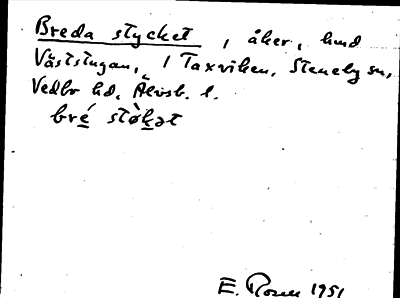 Breda stycket, åker, hmd
Väststugan, 1 Taxviken, Steneby sn,
Vedbo hd, Älvsb. l.
bre´ stø̀kət
E. Rosen 1951